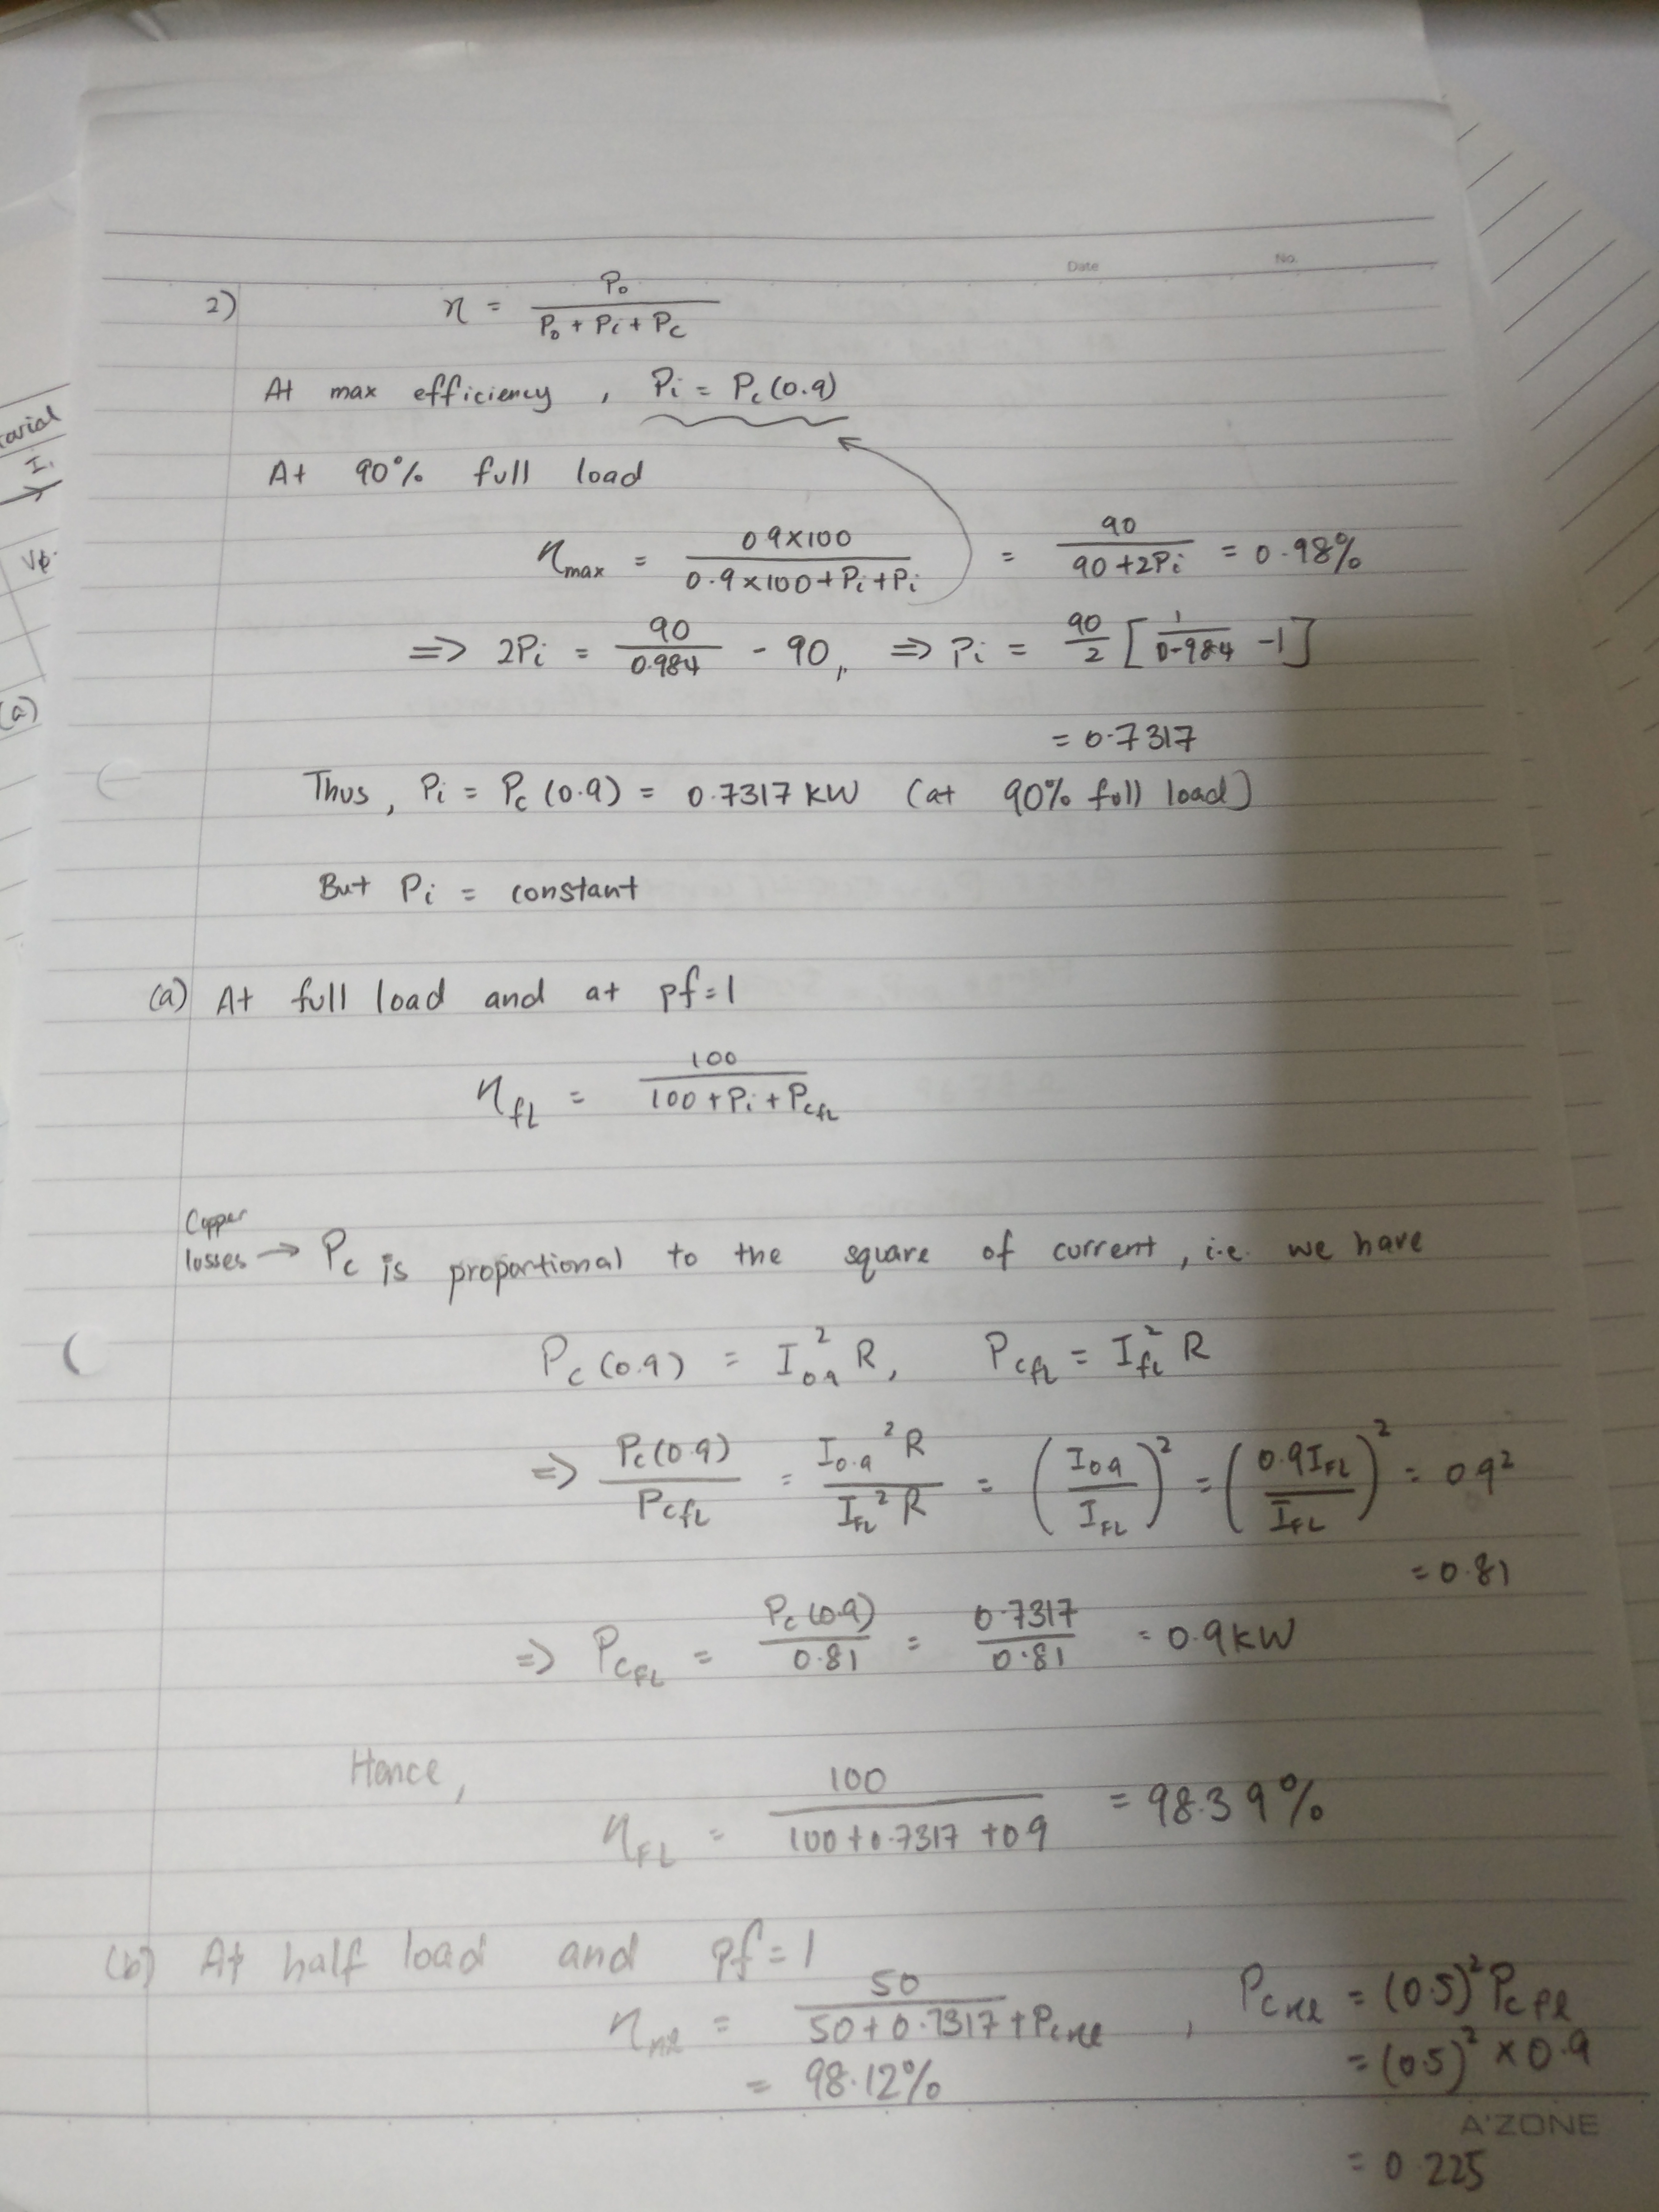 Date No.
2) η = P₀ / (P₀ + Pi + Pc)
At max efficiency , Pi = Pc(0.9)
At 90% full load
ηmax = 0.9×100 / (0.9×100+Pi+Pi) = 90 / (90+2Pi) = 0.98%
=> 2Pi = 90/0.984 - 90, => Pi = 90/2 [1/0.984 -1]
= 0.7317
Thus, Pi = Pc (0.9) = 0.7317 kW (at 90% full load)
But Pi = constant
(a) At full load and at pf=1
ηfL = 100 / (100+Pi+PcfL)
Copper
losses → Pc is proportional to the square of current, i.e. we have
Pc(0.9) = I0.9² R, PcfL = IfL² R
=> Pc(0.9)/PcfL = I0.9² R / IFL² R = (I0.9/IFL)² = (0.9IFL/IFL)² = 0.9²
= 0.81
=> PcFL = Pc(0.9)/0.81 = 0.7317/0.81 = 0.9kW
Hence,
ηFL = 100 / (100+0.7317+0.9) = 98.39%
(b) At half load and pf=1
ηnl = 50 / (50+0.7317+Pcnl) , Pcnl = (0.5)² Pcfl
= 98.12% = (0.5)² × 0.9
A'ZONE
= 0.225
torial
I₁
(a)